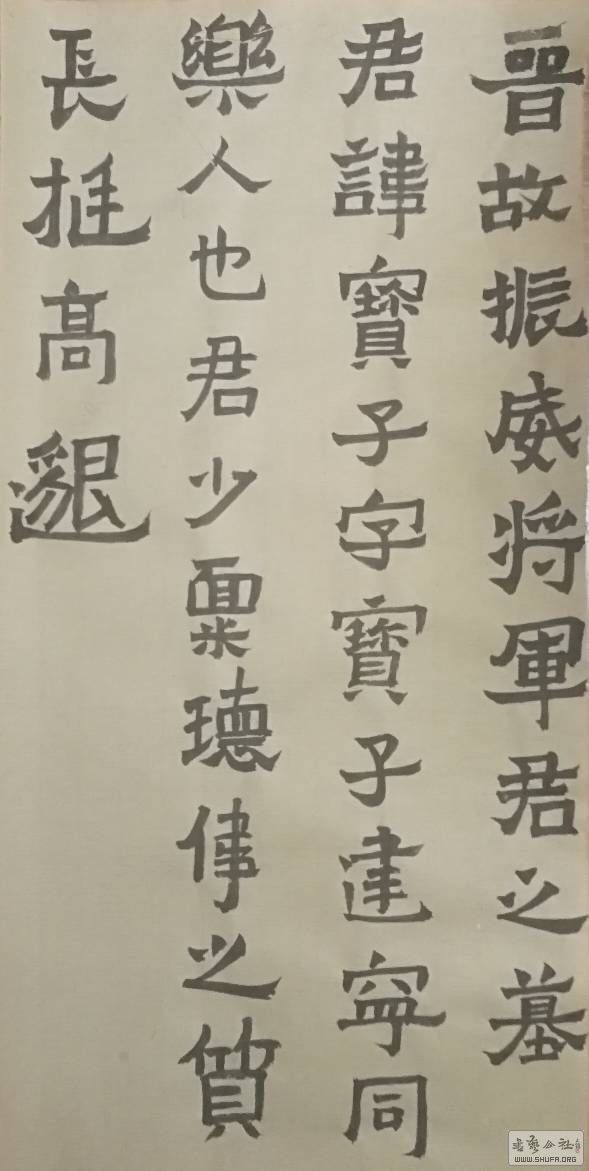 晉故振威将軍君之墓
君諱寶子字寶子建寧同
樂人也君少稟瓌偉之質
長挺高邈
书艺公社
WWW.SHUFA.ORG